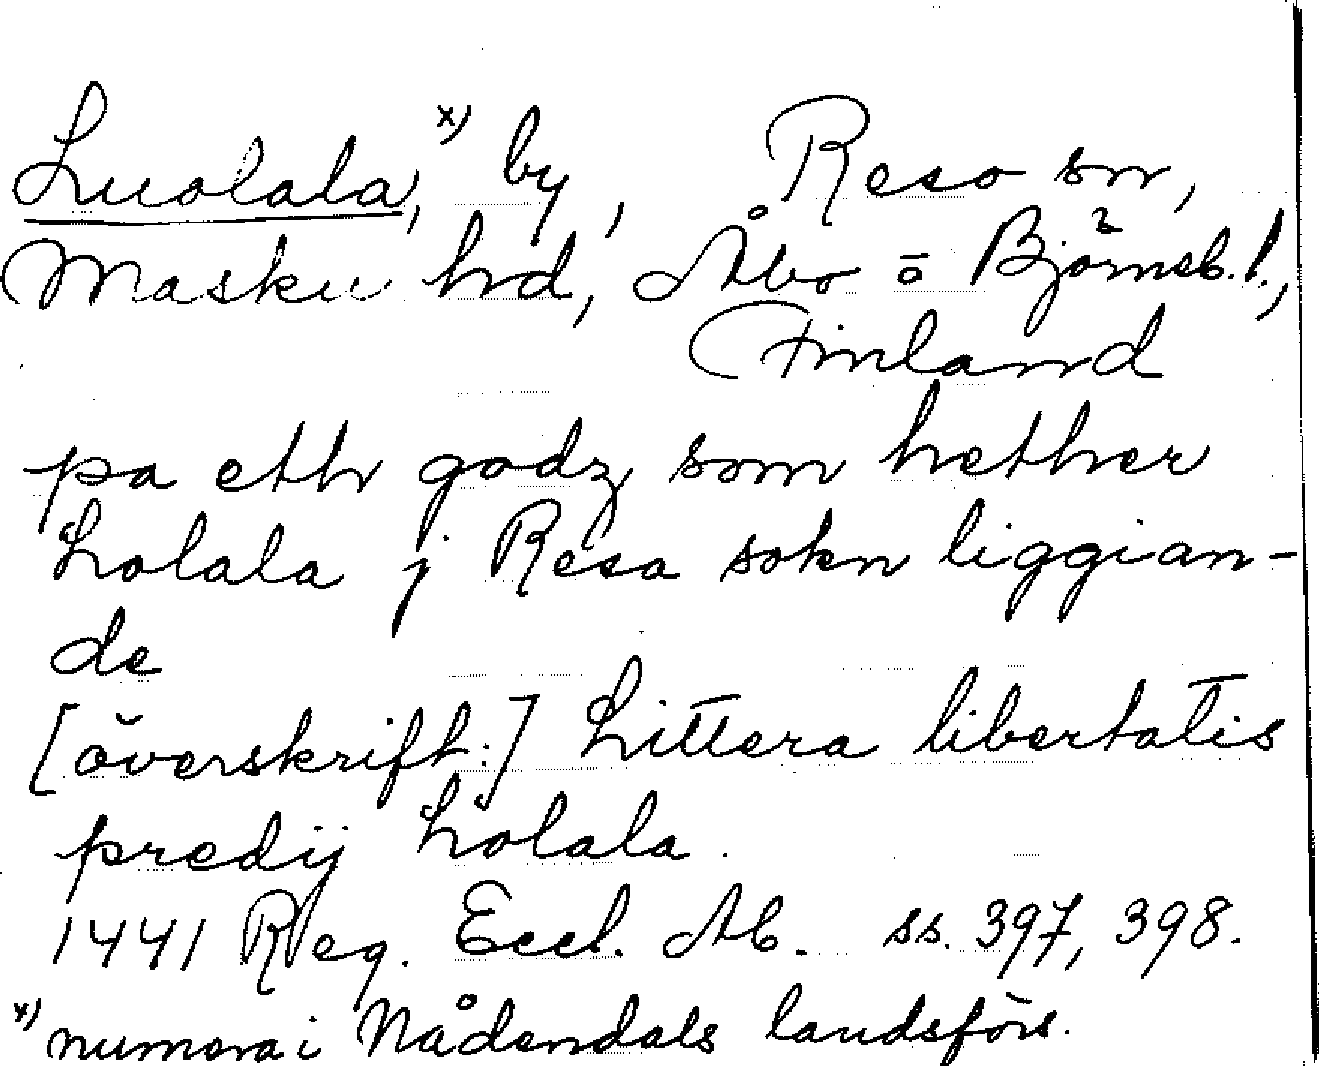 Luolala,ˣ⁾ by, Reso sn,
Masku hd, Åbo o Björneb. l.,
Finland
pa eth godz som hether
Lolala j Resa sokn liggian-
de
[överskrift:] Littera libertatis
predij Lolala.
1441 Reg. Eccl. Ab. ss. 397, 398.
ˣ⁾ numera i Nådendals landsförs.